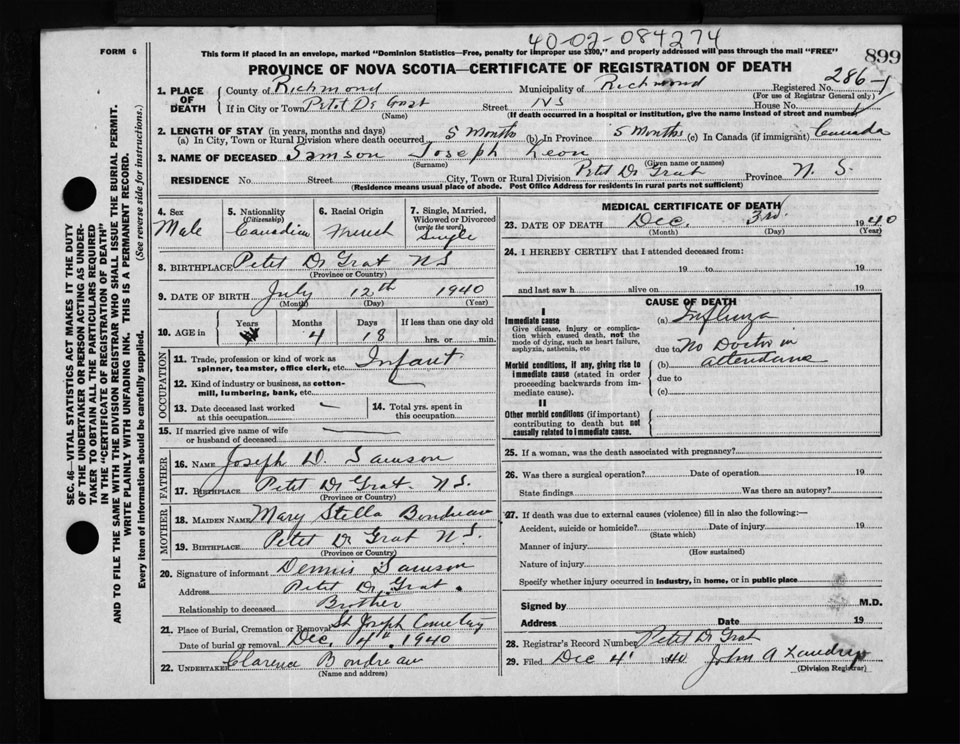 40-02-084274
FORM 6
This form if placed in an envelope, marked "Dominion Statistics—Free, penalty for improper use $300," and properly addressed will pass through the mail "FREE"
899
PROVINCE OF NOVA SCOTIA—CERTIFICATE OF REGISTRATION OF DEATH
1. PLACE OF DEATH { County of Richmond Municipality of Richmond Registered No. 286-1
(For use of Registrar General only)
If in City or Town Petet De Grat Street NS House No.
(Name) (If death occurred in a hospital or institution, give the name instead of street and number)
2. LENGTH OF STAY (in years, months and days)
(a) In City, Town or Rural Division where death occurred 5 Months (b) In Province 5 Months (c) In Canada (if immigrant) Canada
3. NAME OF DECEASED Samson Joseph Leon
(Surname) (Given name or names)
RESIDENCE No. Street City, Town or Rural Division Petet De Grat Province N. S.
(Residence means usual place of abode. Post Office Address for residents in rural parts not sufficient)
4. Sex
Male
5. Nationality
(Citizenship)
Canadian
6. Racial Origin
French
7. Single, Married, Widowed or Divorced
(write the word)
Single
8. BIRTHPLACE Petet De Grat NS
(Province or Country)
9. DATE OF BIRTH July 12th 1940
(Month) (Day) (Year)
10. AGE in Years Months Days If less than one day old
4 18 hrs. or min.
OCCUPATION
11. Trade, profession or kind of work as
spinner, teamster, office clerk, etc. Infant
12. Kind of industry or business, as cotton-
mill, lumbering, bank, etc.
13. Date deceased last worked
at this occupation
14. Total yrs. spent in
this occupation
15. If married give name of wife
or husband of deceased
FATHER
16. NAME Joseph D. Samson
17. BIRTHPLACE Petet De Grat N.S.
(Province or Country)
MOTHER
18. MAIDEN NAME Mary Stella Boudreau
19. BIRTHPLACE Petet De Grat N.S.
(Province or Country)
20. Signature of informant Dennis Samson
Address Petet De Grat.
Relationship to deceased Brother
21. Place of Burial, Cremation or Removal St Joseph Cemetery
Date of burial or removal Dec. 4th 1940
22. UNDERTAKER Clarence Boudreau
(Name and address)
MEDICAL CERTIFICATE OF DEATH
23. DATE OF DEATH Dec. 3rd. 1940
(Month) (Day) (Year)
24. I HEREBY CERTIFY that I attended deceased from:
19 to 19
and last saw h alive on 19
CAUSE OF DEATH
I
Immediate cause (a) Influnza
Give disease, injury or complica-
tion which caused death, not the
mode of dying, such as heart failure,
asphyxia, asthenia, etc
due to No Doctor in
Morbid conditions, if any, giving rise to
immediate cause (stated in order
proceeding backwards from im-
mediate cause).
(b) attendance
due to
(c)
II
Other morbid conditions (if important)
contributing to death but not
causally related to immediate cause.
25. If a woman, was the death associated with pregnancy?
26. Was there a surgical operation? Date of operation 19
State findings Was there an autopsy?
27. If death was due to external causes (violence) fill in also the following:—
Accident, suicide or homicide? Date of injury 19
(State which)
Manner of injury
(How sustained)
Nature of injury
Specify whether injury occurred in industry, in home, or in public place
Signed by M.D.
Address Date 19
28. Registrar's Record Number Petet De Grat
29. Filed Dec 4 1940 John A Landry
(Division Registrar)
SEC. 46—VITAL STATISTICS ACT MAKES IT THE DUTY
OF THE UNDERTAKER OR PERSON ACTING AS UNDER-
TAKER TO OBTAIN ALL THE PARTICULARS REQUIRED
IN THE "CERTIFICATE OF REGISTRATION OF DEATH"
AND TO FILE THE SAME WITH THE DIVISION REGISTRAR WHO SHALL ISSUE THE BURIAL PERMIT.
WRITE PLAINLY WITH UNFADING INK. THIS IS A PERMANENT RECORD.
Every item of information should be carefully supplied. (See reverse side for instructions.)